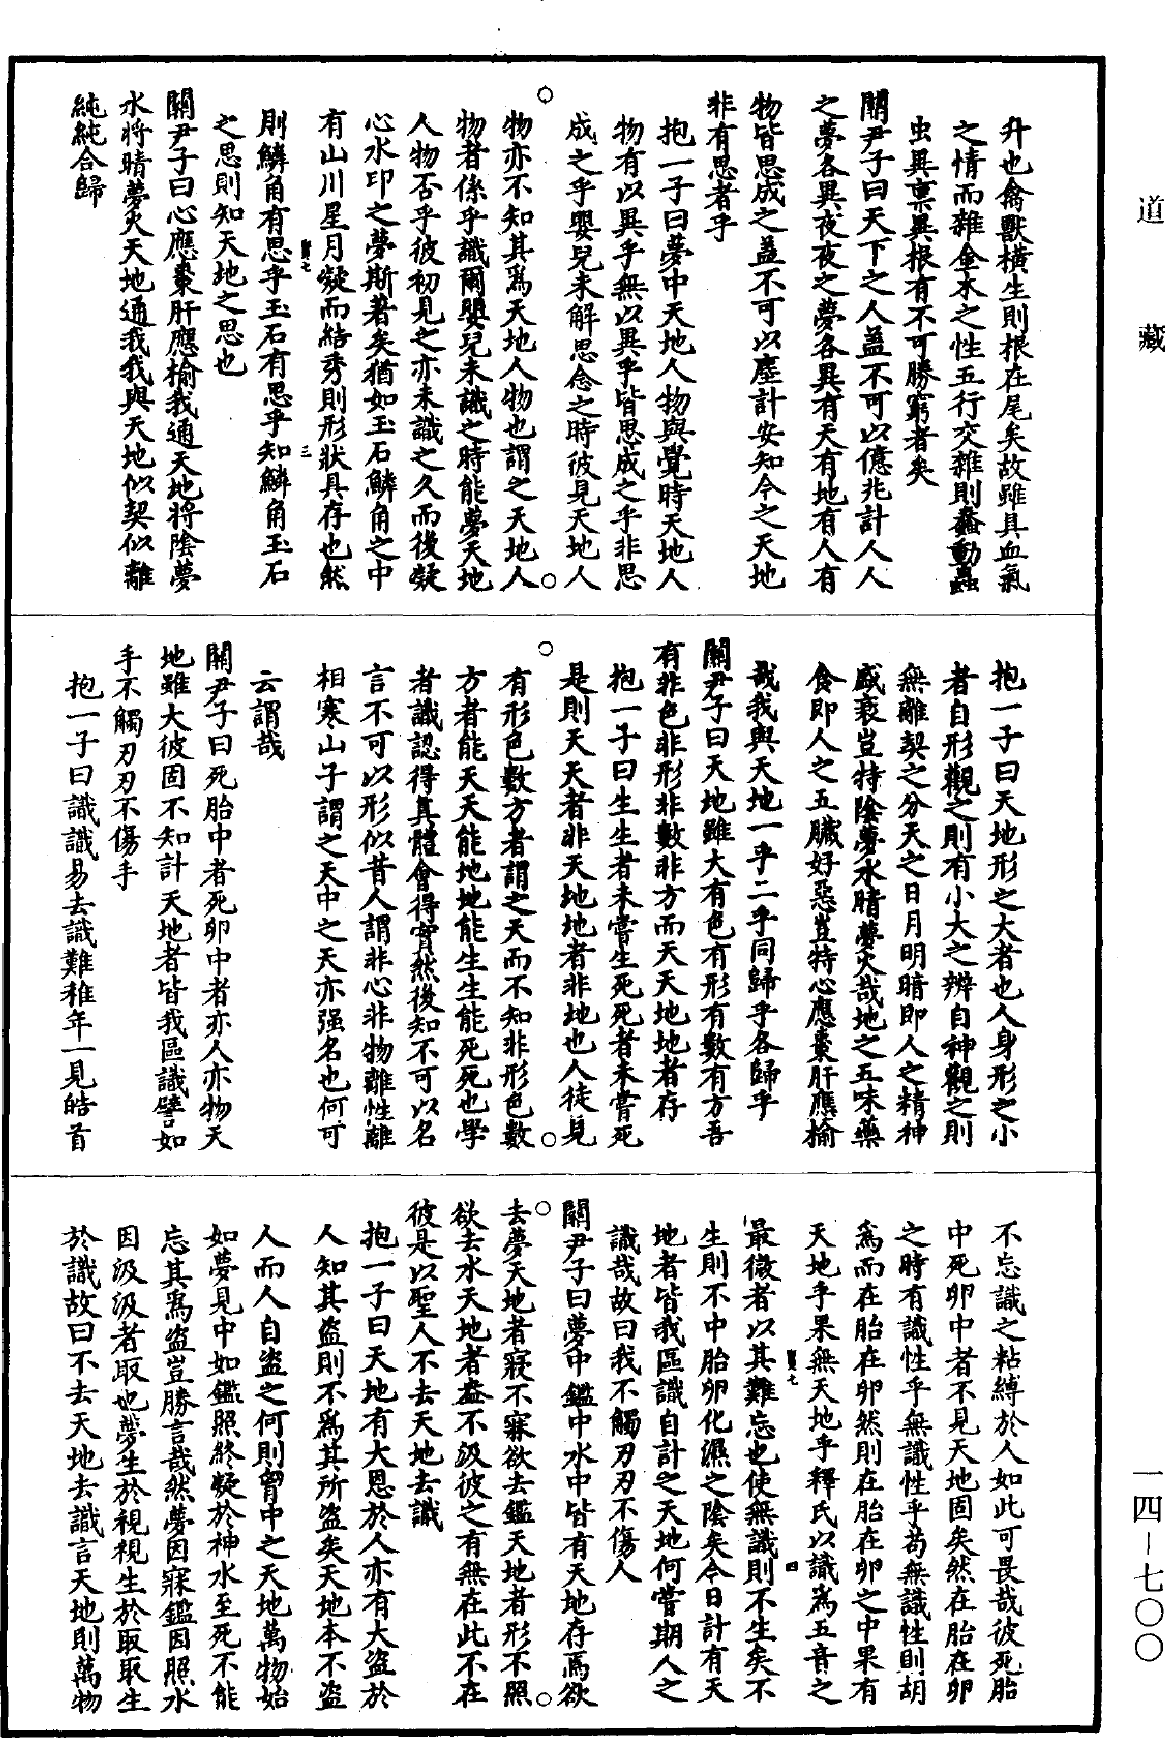 道藏
升也禽獸橫生則根在尾矣故雖具血氣
之情而雜金木之性五行交雜則蠢動蟲
虫異稟異根有不可勝窮者矣
關尹子曰天下之人蓋不可以億兆計人人
之夢各異夜夜之夢各異有天有地有人有
物皆思成之蓋不可以塵計安知今之天地
非有思者乎
抱一子曰夢中天地人物與覺時天地人
物有以異乎無以異乎皆思成之乎非思
成之乎嬰兒未解思念之時彼見天地人
物亦不知其爲天地人物也謂之天地人
物者係乎識爾嬰兒未識之時能夢天地
人物否乎彼初見之亦未識之久而後凝
心水印之夢斯著矣猶如玉石鱗角之中
有山川星月凝而結秀則形狀具存也然
則鱗角有思乎玉石有思乎知鱗角玉石
之思則知天地之思也
關尹子曰心應棗肝應榆我通天地將陰夢
水將晴夢火天地通我我與天地似契似離
純純合歸
抱一子曰天地形之大者也人身形之小
者自形觀之則有小大之辨自神觀之則
無離契之分天之日月明暗即人之精神
盛衰豈特陰夢水晴夢火哉地之五味藥
食即人之五臟好惡豈特心應棗肝應榆
哉我與天地一乎二乎同歸乎各歸乎
關尹子曰天地雖大有色有形有數有方吾
有非色非形非數非方而天天地地者存
抱一子曰生生者未嘗生死死者未嘗死
是則天天者非天地地者非地也人徒見
有形色數方者謂之天而不知非形色數
方者能天天能地地能生生能死死也學
者識認得真體會得實然後知不可以名
言不可以形似昔人謂非心非物離性離
相寒山子謂之天中之天亦强名也何可
云謂哉
關尹子曰死胎中者死卵中者亦人亦物天
地雖大彼固不知計天地者皆我區識譬如
手不觸刃刃不傷手
抱一子曰識識易去識難稚年一見皓首
不忘識之粘縛於人如此可畏哉彼死胎
中死卵中者不見天地固矣然在胎在卵
之時有識性乎無識性乎苟無識性則胡
爲而在胎在卵然則在胎在卵之中果有
天地乎果無天地乎釋氏以識爲五音之
最微者以其難忘也使無識則不生矣不
生則不中胎卵化濕之陰矣今日計有天
地者皆我區識自計之天地何嘗期人之
識哉故曰我不觸刃刃不傷人
關尹子曰夢中鑑中水中皆有天地存焉欲
去夢天地者寢不寐欲去鑑天地者形不照
欲去水天地者盎不汲彼之有無在此不在
彼是以聖人不去天地去識
抱一子曰天地有大恩於人亦有大盜於
人知其盜則不爲其所盜矣天地本不盜
人而人自盜之何則胷中之天地萬物始
如夢見中如鑑照終凝於神水至死不能
忘其爲盜豈勝言哉然夢因寐鑑因照水
因汲汲者取也夢生於視視生於取取生
於識故曰不去天地去識言天地則萬物
一四-七〇〇